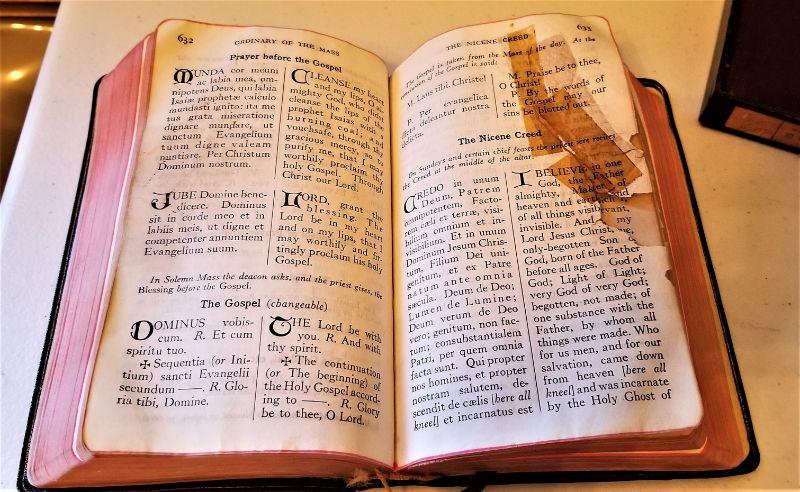 632
ORDINARY OF THE MASS
Prayer before the Gospel
MUNDA cor meum
ac labia mea, om-
nipotens Deus, qui labia
Isaiæ prophetæ calculo
mundasti ignito: ita me
tua grata miseratione
dignare mundare, ut
sanctum Evangelium
tuum digne valeam
nuntiare. Per Christum
Dominum nostrum.
CLEANSE my heart
and my lips, O Al-
mighty God, who didst
cleanse the lips of the
prophet Isaias with a
burning coal, and
vouchsafe, through thy
gracious mercy, so to
purify me, that I may
worthily proclaim thy
holy Gospel. Through
Christ our Lord.
JUBE Domine bene-
dicere. Dominus
sit in corde meo et in
labiis meis, ut digne et
competenter annuntiem
Evangelium suum.
LORD, grant the
blessing. The
Lord be in my heart
and on my lips, that I
may worthily and fit-
tingly proclaim his holy
Gospel.
In Solemn Mass the deacon asks, and the priest gives, the
Blessing before the Gospel.
The Gospel (changeable)
DOMINUS vobis-
cum. R. Et cum
spiritu tuo.
✠ Sequentia (or Ini-
tium) sancti Evangelii
secundum —. R. Glo-
ria tibi, Domine.
THE Lord be with
you. R. And with
thy spirit.
✠ The continuation
(or The beginning) of
the Holy Gospel accord-
ing to —. R. Glory
be to thee, O Lord.
THE NICENE CREED
633
The Gospel is taken from the Mass of the day. At the
conclusion of the Gospel is said:
M. Laus tibi, Christe!
P. Per evangelica
dicta deleantur nostra
delicta.
M. Praise be to thee,
O Christ!
P. By the words of
the Gospel may our
sins be blotted out.
The Nicene Creed
On Sundays and certain chief feasts the priest here recites
the Creed at the middle of the altar:
CREDO in unum
Deum, Patrem
omnipotentem, Facto-
rem cæli et terræ, visi-
bilium omnium et in-
visibilium. Et in unum
Dominum Jesum Chris-
tum, Filium Dei uni-
genitum, et ex Patre
natum ante omnia
sæcula. Deum de Deo;
Lumen de Lumine;
Deum verum de Deo
vero; genitum, non fac-
tum; consubstantialem
Patri, per quem omnia
facta sunt. Qui propter
nos homines, et propter
nostram salutem, de-
scendit de cælis [here all
kneel] et incarnatus est
I BELIEVE in one
God, the Father
almighty, Maker of
heaven and earth, and
of all things visible
invisible. And my
Lord Jesus Christ,
only-begotten Son
God, born of the Father
before all ages. God of
God; Light of Light;
very God of very God;
begotten, not made; of
one substance with the
Father, by whom all
things were made. Who
for us men, and for our
salvation, came down
from heaven [here all
kneel] and was incarnate
by the Holy Ghost of